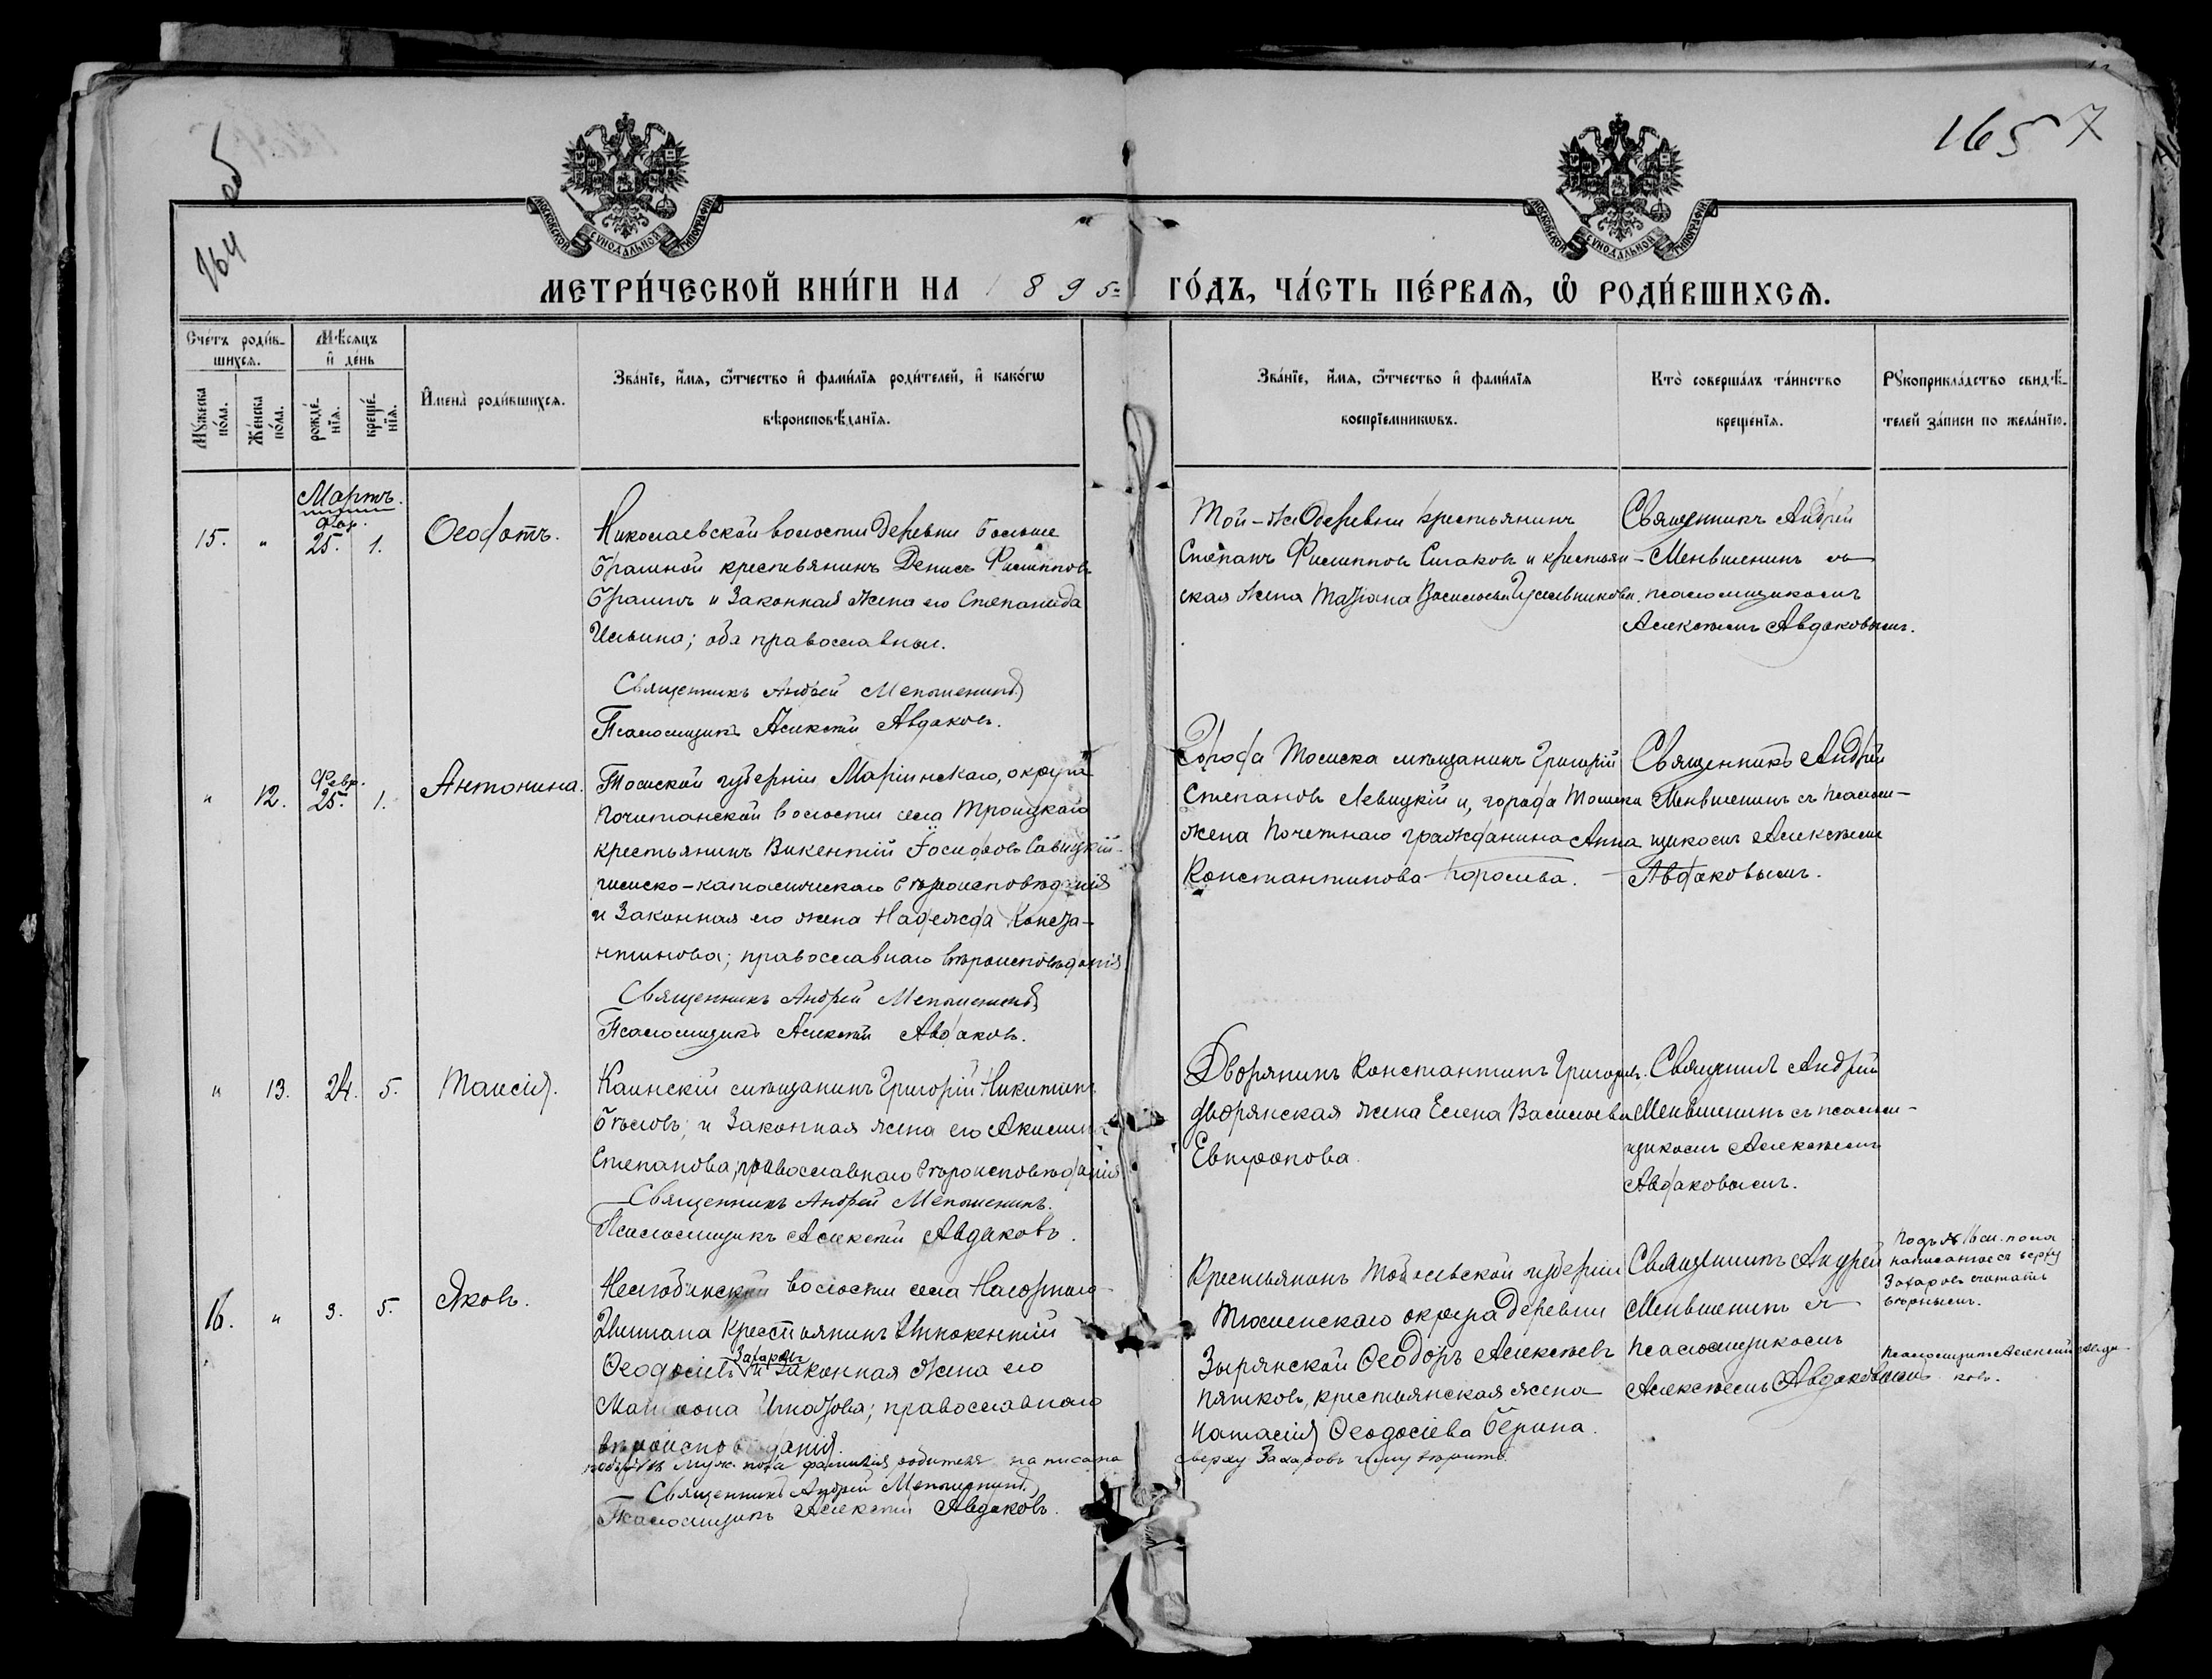 165 7
164
МОСКОВСКОЙ СУНОДАЛЬНОЙ ТИПОГРАФІИ
МОСКОВСКОЙ СУНОДАЛЬНОЙ ТИПОГРАФІИ
МЕТРИ́ЧЕСКОЙ КНИ́ГИ НА 1895 ГО́ДЪ, ЧА́СТЬ ПЕ́РВАѦ, Ѡ҆ РОДИ́ВШИХСѦ.
Сче́тъ роди́в-
шихсѧ.
Мꙋ́жеска
по́ла.
Же́нска
по́ла.
Мѣ́сѧцъ
и҆ де́нь
рожде́-
нїѧ.
креще́-
нїѧ.
И҆мена̀ роди́вшихсѧ.
Зва́нїе, и҆́мѧ, ѻ҆́тчество и҆ фами́лїѧ роди́телей, и҆ како́гѡ
вѣроисповѣ́данїѧ.
Зва́нїе, и҆́мѧ, ѻ҆́тчество и҆ фами́лїѧ
воспрїе́мникѡвъ.
Кто̀ соверша́лъ та́инство
креще́нїѧ.
Рꙋкоприкла́дство свидѣ́-
телей за́писи по жела́нїю.
Мартъ.
Фев.
15. " 25. 1. Ѳеодотъ.
Николаевской волости деревни Больше
Брашной крестьянинъ Денисъ Филипповъ
Брашинъ и Законная жена его Степанида
Ильина; оба православные.
Священникъ Андрей Меньшенинъ
Псаломщикъ Алексѣй Авдаковъ.
Той-же деревни крестьянинъ
Степанъ Филипповъ и крестьян-
ская жена Татіана Васильева
Священникъ Андрей
Меньшенинъ съ
псаломщикомъ
Алексѣемъ Авдаковымъ.
Февр.
" 12. 25. 1. Антонина.
Томской губерніи Маріинскаго, округа
Почитанской волости села Троицкаго
крестьянинъ Викентій Іосифовъ Савицкій-
римско-католическаго вѣроисповѣданія
и Законная его жена Надежда Конста-
нтинова; православнаго вѣроисповѣданія.
Священникъ Андрей Меньшенинъ
Псаломщикъ Алексѣй Авдаковъ.
Города Томска мѣщанинъ Григорій
Степановъ Левицкій и, города Томска
жена Почетнаго гражданина Анна
Константинова Королева.
Священникъ Андрей
Меньшенинъ съ псалом-
щикомъ Алексѣемъ
Авдаковымъ.
" 13. 24. 5. Таисія.
Каинскій мѣщанинъ Григорій Никитинъ
Бѣловъ; и Законная жена его Акилина
Степанова; православнаго вѣроисповѣданія
Священникъ Андрей Меньшенинъ.
Псаломщикъ Алексѣй Авдаковъ.
Дворянинъ Константинъ Григорьев.
дворянская жена Елена Васильева
Евтропова.
Священникъ Андрей
Меньшенинъ съ псалом-
щикомъ Алексѣемъ
Авдаковымъ.
16. " 3. 5. Яковъ.
волости села Нагорнаго
Иштана Крестьянинъ Иннокентій
Захаровъ
Ѳеодосіевъ и Законная жена его
Матрона Игнатова; православнаго
вѣроисповѣданія.
муж. пола фамилія родителя написана
сверху Захаровъ чему вѣрить.
Священникъ Андрей Меньшенинъ
Псаломщикъ Алексѣй Авдаковъ.
Крестьянинъ Тобольской губерніи
Тюменскаго округа деревни
Зырянской Ѳеодоръ Алексѣевъ
Пятковъ, крестьянская жена
Наталія Ѳеодосіева Берина.
Священникъ Андрей
Меньшенинъ съ
псаломщикомъ
Алексѣемъ Авдаковымъ
Подъ № 16 м. пола
написанное съ верху
Захаровъ считать
вѣрнымъ.
Псаломщикъ Алексѣй Авда-
ковъ.